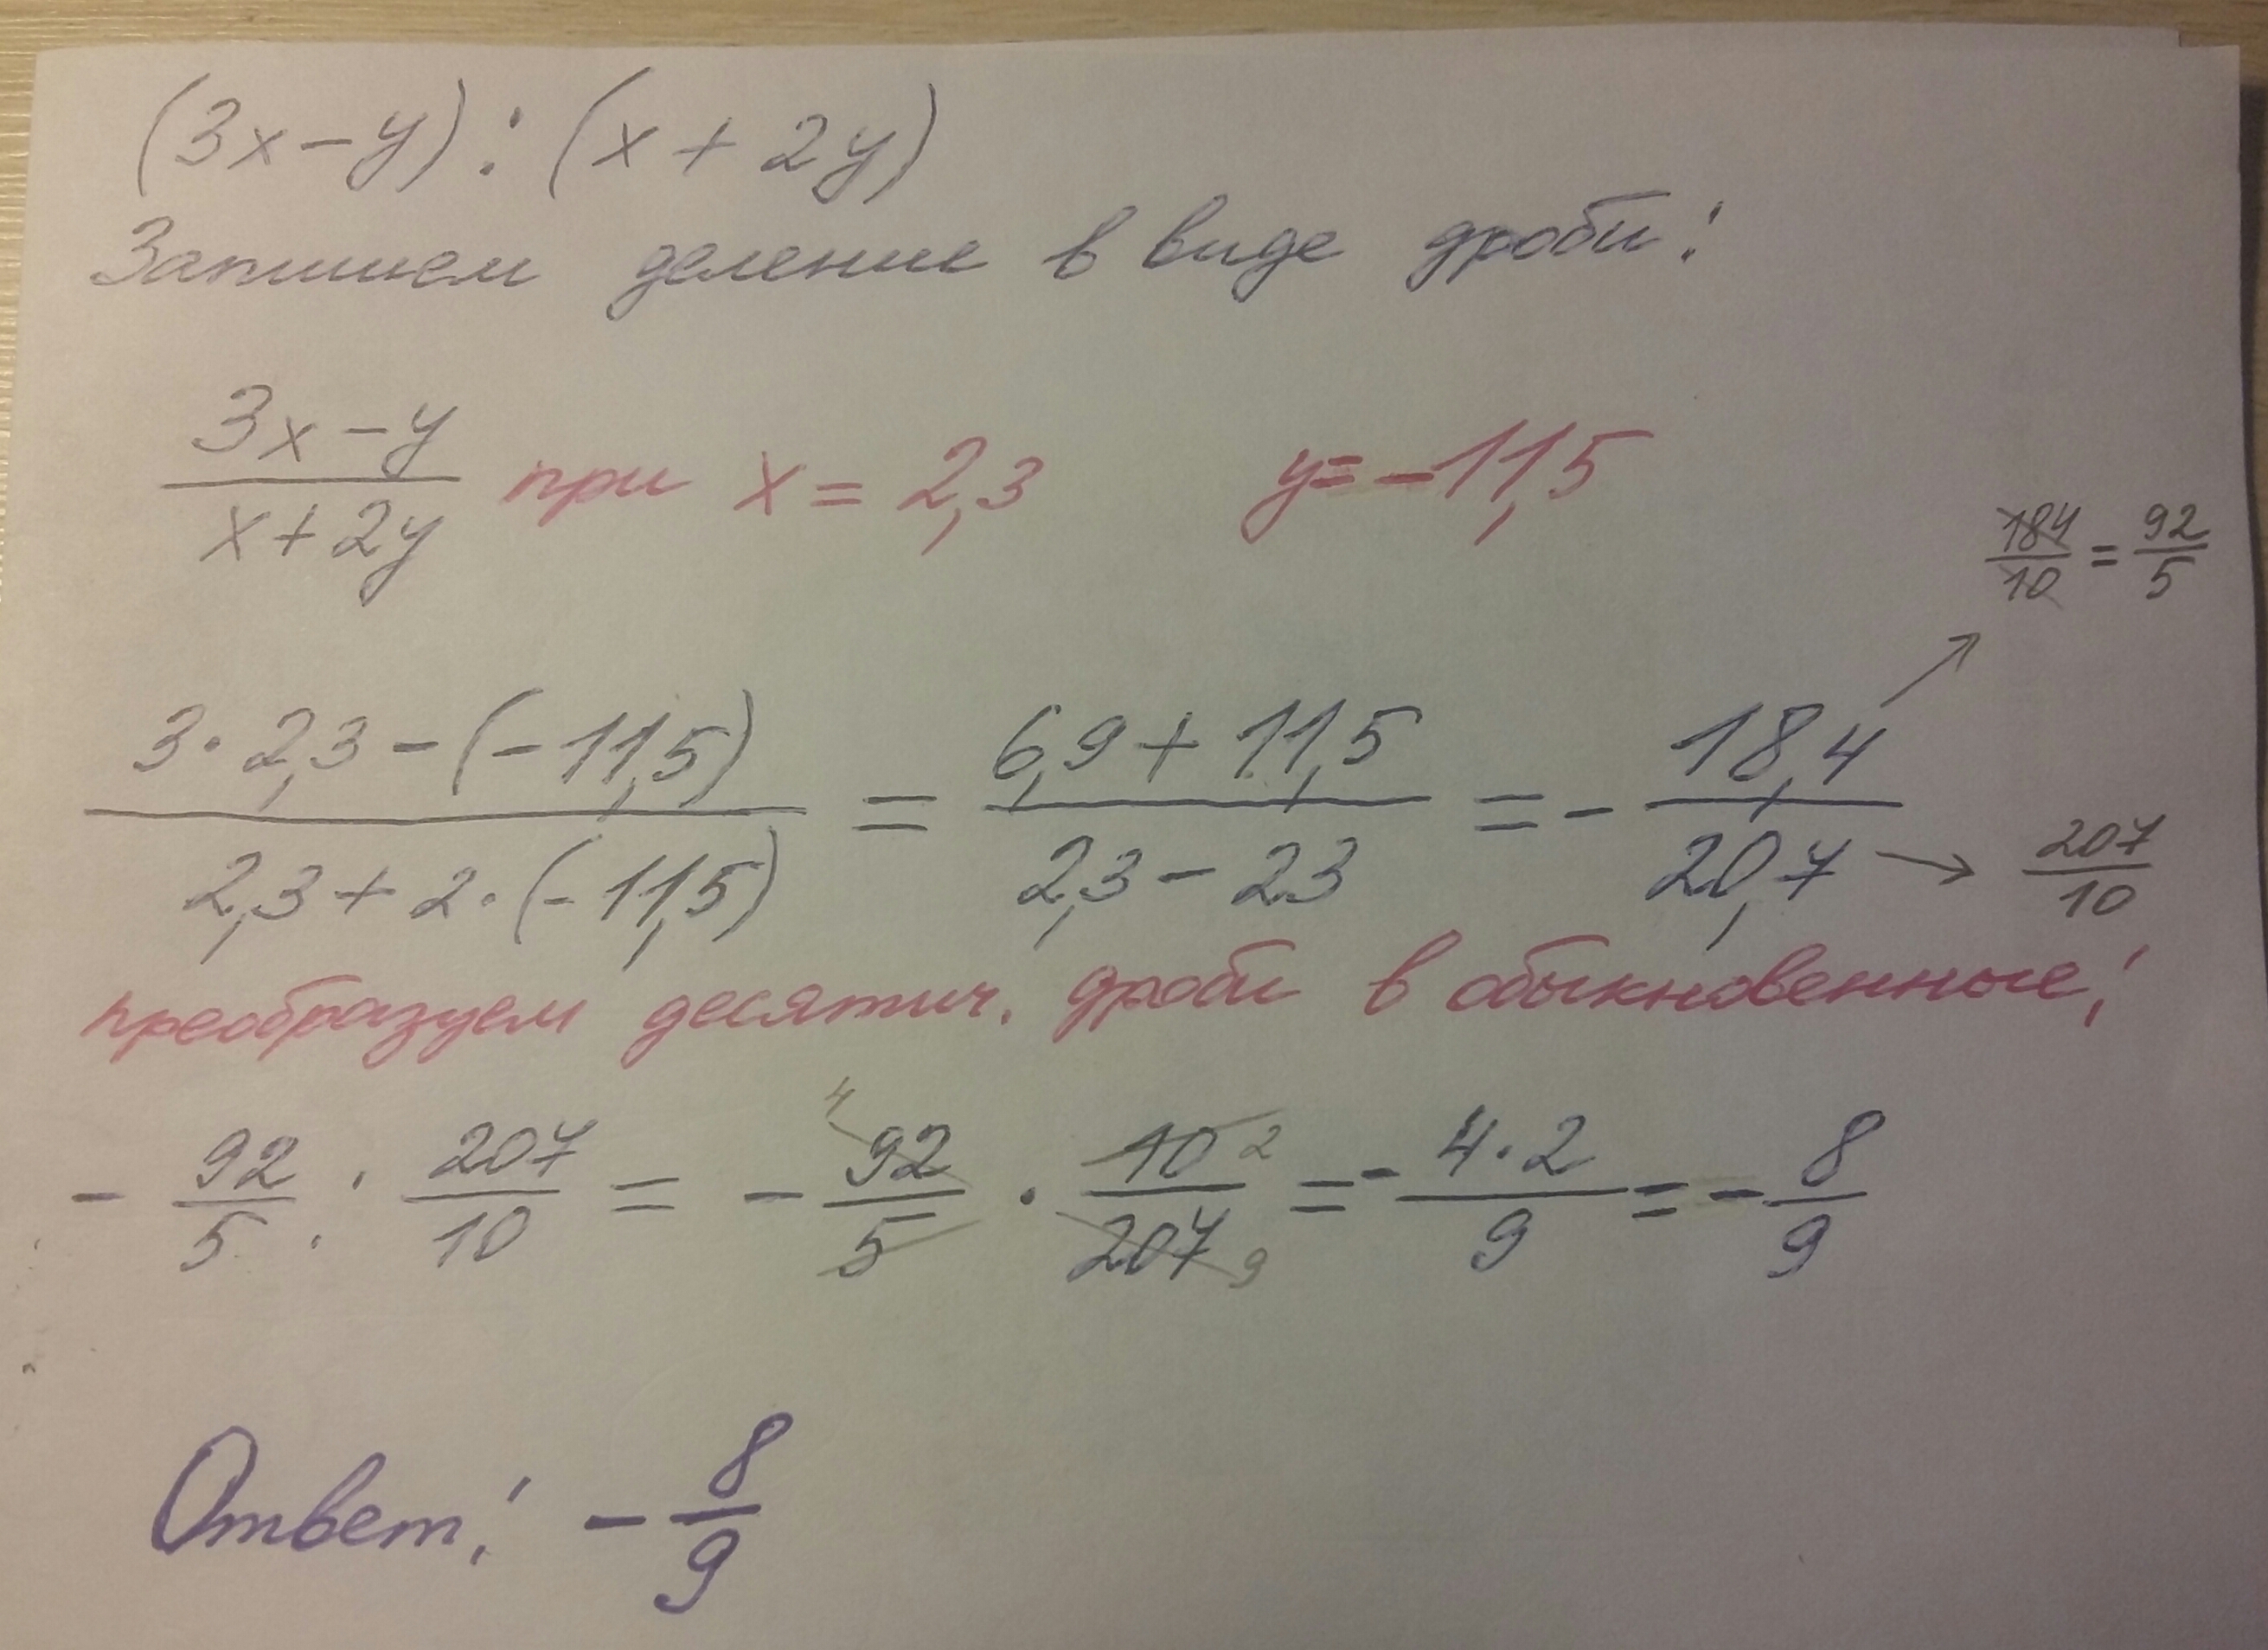 (3x-y):(x+2y)
Запишем деление в виде дроби:
3x-y
x+2y
при x=2,3 y=-11,5
184/10 = 92/5
3·2,3-(-11,5) / 2,3+2·(-11,5) = 6,9+11,5 / 2,3-23 = - 18,4 / 20,7
→ 207/10
преобразуем десятич. дроби в обыкновенные:
- 92/5 : 207/10 = - 92/5 · 10/207 = - 4·2/9 = - 8/9
4 2 9
Ответ: - 8/9